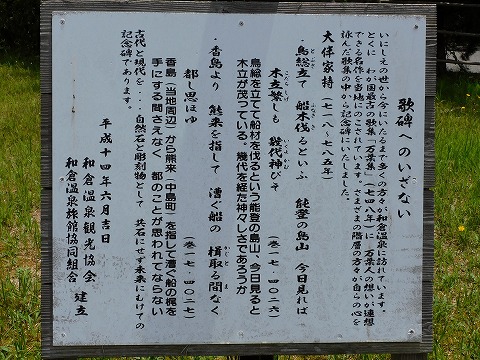 歌碑へのいざない
いにしえの世から今にいたるまで多くの方々が和倉温泉に訪れています。
とくに、わが国最古の歌集「万葉集」(七四八年)に、万葉人の想いが連想
できる名作を当地にのこされています。さまざまの階層の方々が自らの心を
詠んだ歌集の中から記念碑にいたしました。
大伴家持(七一八～七八五年)
・鳥総立て 船木伐るといふ 能登の島山 今日見れば
木立繁しも 幾代神びそ (巻一七・四〇二六)
鳥総を立てて船材を伐るという能登の島山、今日見ると
木立が茂っている。幾代を経た神々しさであろうか
・香島より 熊来を指して 漕ぐ船の 楫取る間なく
都し思ほゆ (巻一七・四〇二七)
香島(当地周辺)から熊来(中島町)を指して漕ぐ船の梶を
手にする間さえなく、都のことが思われてならない
古代と現代を・・自然石と彫刻物として、共石にせず未来にむけての
記念碑であります。
平成十四年六月吉日
和倉温泉観光協会
和倉温泉旅館協同組合 建立